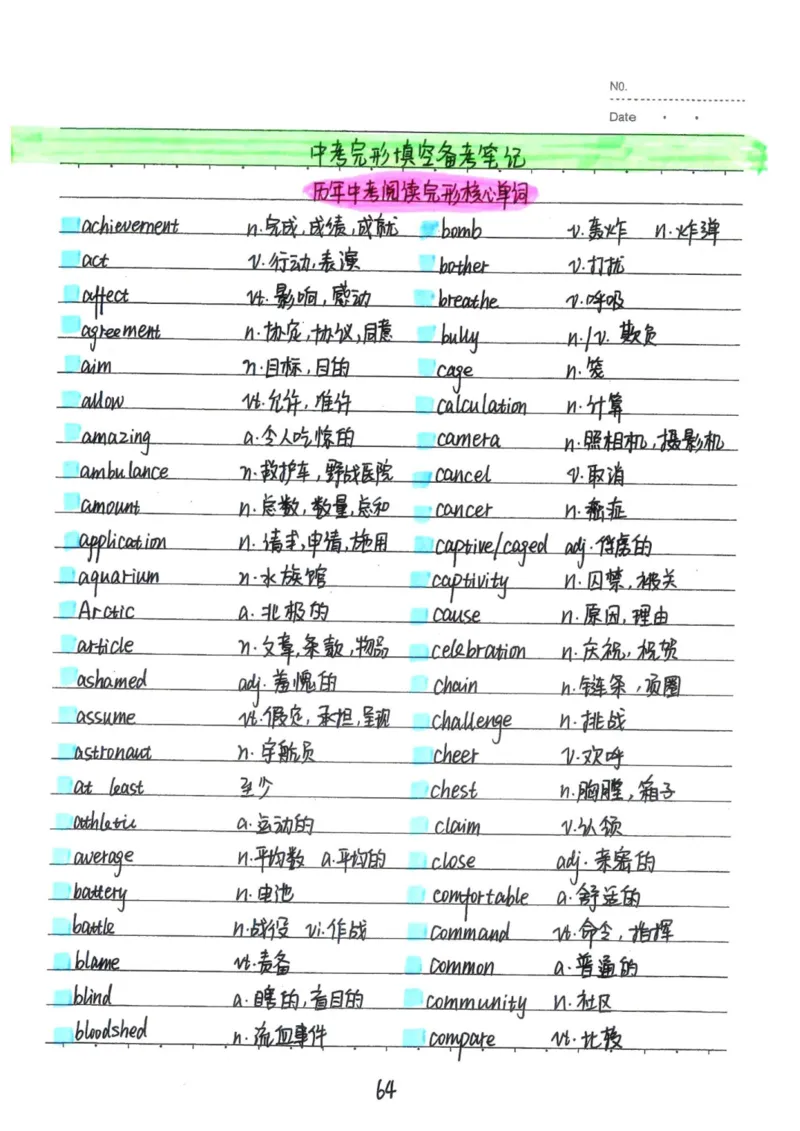 NO.
Date
中考完形填空备考笔记
历年中考阅读完形核心单词
achievement n.完成,成绩,成就
act v.行动,表演
affect vt.影响,感动
agreement n.协定,协议,同意
aim n.目标,目的
allow vt.允许,准许
amazing a.令人吃惊的
ambulance n.救护车,野战医院
amount n.总数,数量,总和
application n.请求,申请,施用
aquarium n.水族馆
Arctic a.北极的
article n.文章,条款,物品
ashamed adj.羞愧的
assume vt.假定,承担,呈现
astronaut n.宇航员
at least 至少
athletic a.运动的
average n.平均数 a.平均的
battery n.电池
battle n.战役 vi.作战
blame vt.责备
blind a.瞎的,盲目的
bloodshed n.流血事件
bomb v.轰炸 n.炸弹
bother v.打扰
breathe v.呼吸
bully n./v.欺负
cage n.笼
calculation n.计算
camera n.照相机,摄影机
cancel v.取消
cancer n.癌症
captive/caged adj.俘虏的
captivity n.囚禁,被关
cause n.原因,理由
celebration n.庆祝,祝贺
chain n.链条,项圈
challenge n.挑战
cheer v.欢呼
chest n.胸膛,箱子
claim v.认领
close adj.亲密的
comfortable a.舒适的
command vt.命令,指挥
common a.普通的
community n.社区
compare vt.比较
64